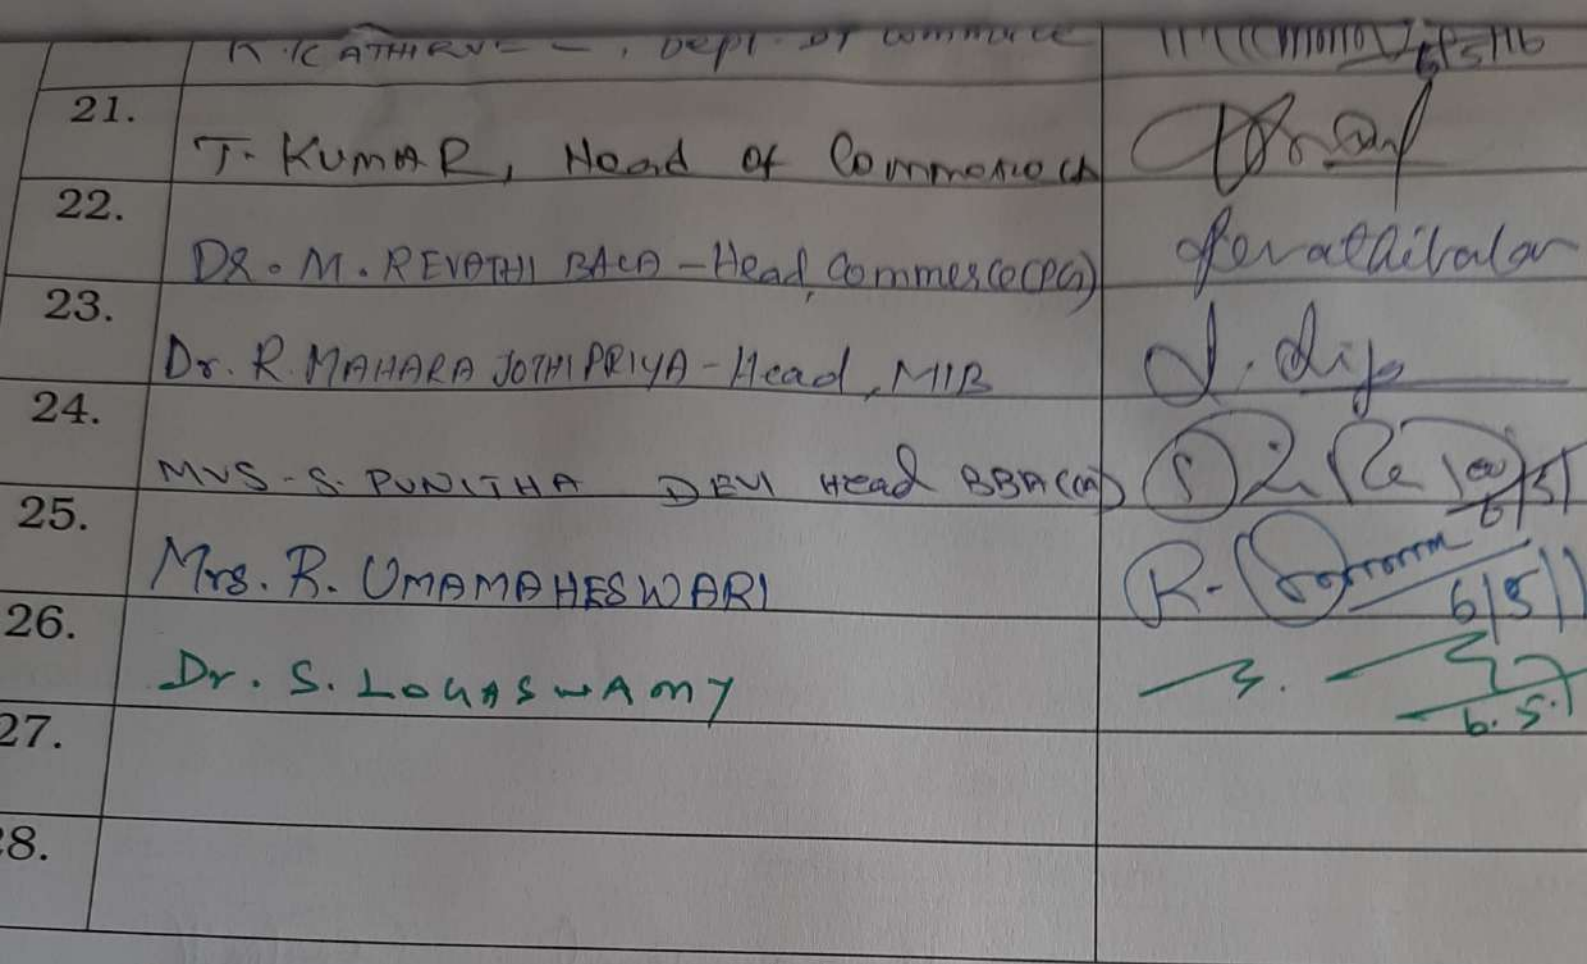 Dept. of Commerce
21.
T. KUMAR, Head of Commerce CA
22.
DR. M. REVATHI BALA - Head, Commerce (PG)
Revathibala
23.
Dr. R. MAHARA JOTHI PRIYA - Head, MIB
24.
MRS. S. PUNITHA DEVI Head BBA(CA)
25.
Mrs. R. UMAMAHESWARI
R.
6/5/
26.
Dr. S. LOGASWAMY
6.5.
27.
28.